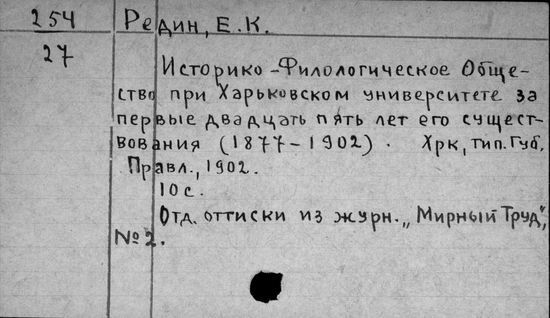 254
27
Редин, Е.К.
Историко-Филологическое Обще-
ство при Харьковском университете за
первые двадцать пять лет его сущест-
вования (1877-1902). Хрк, тип. Губ.
Правл., 1902.
10 с.
Отд. оттиски из журн. „Мирный Труд",
№ 2.